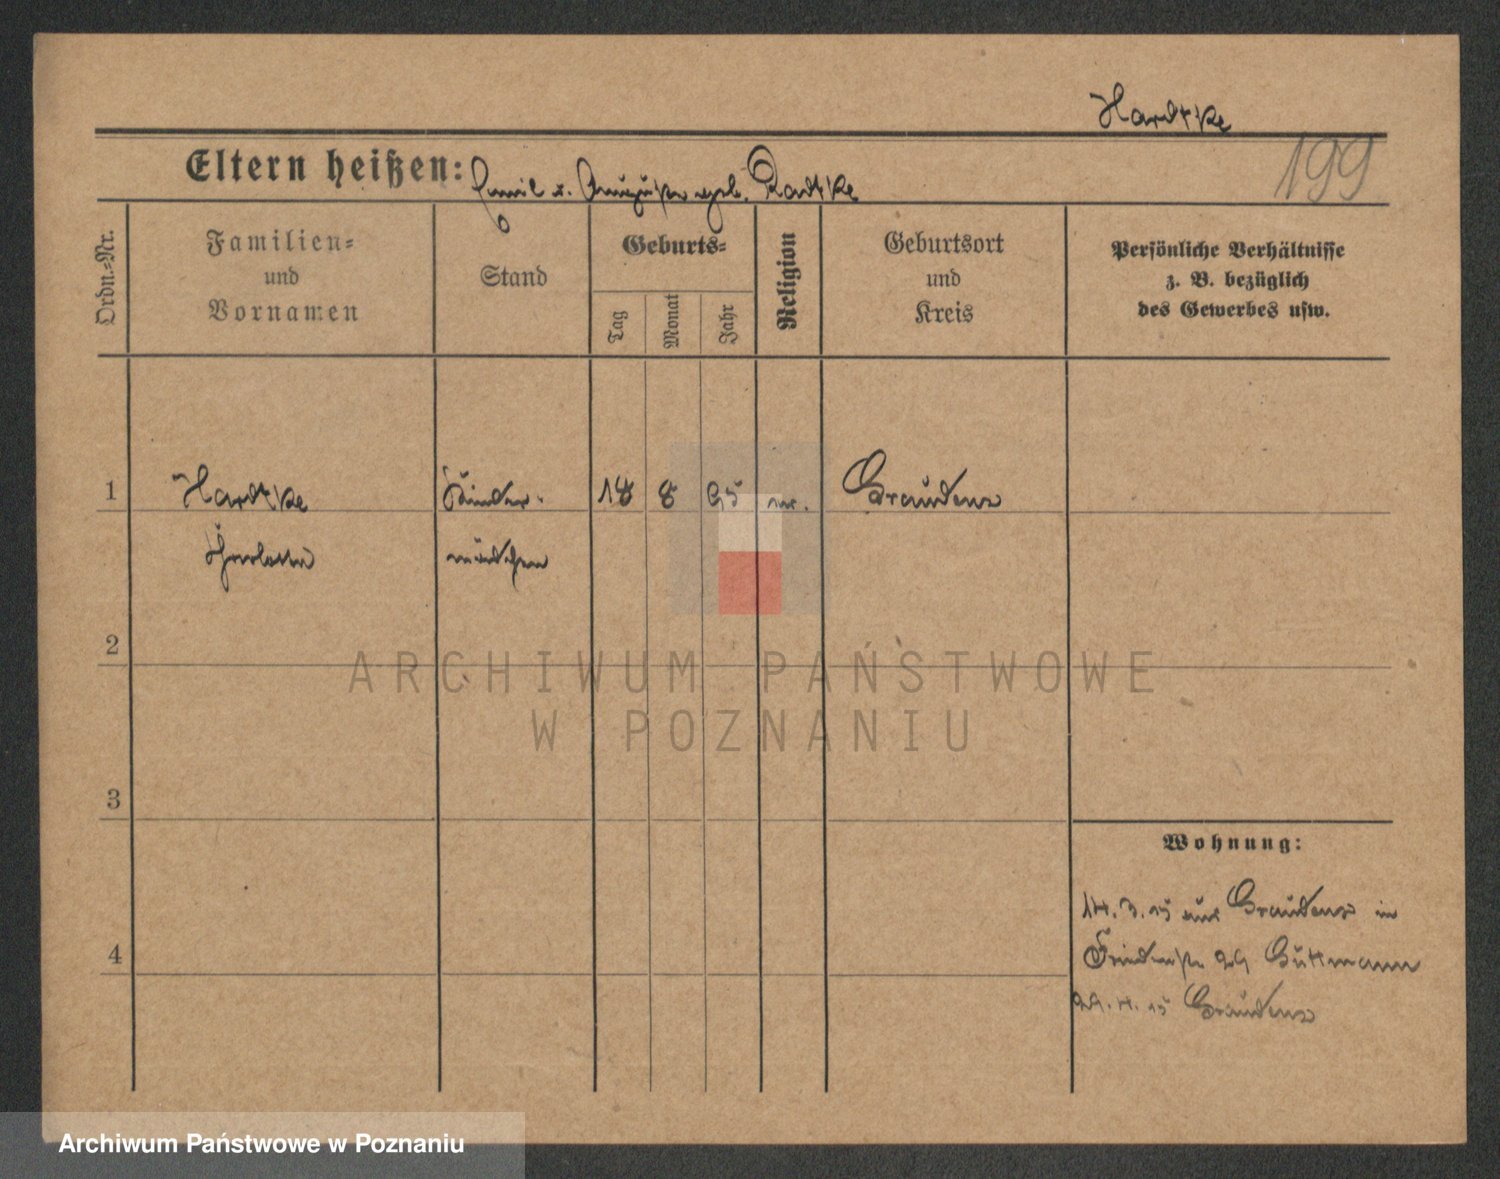 Hardtke
199
Eltern heißen: Emil u. Auguste geb. Radtke
Ordn.=Nr.
Familien=
und
Vornamen
Stand
Geburts=
Tag
Monat
Jahr
Religion
Geburtsort
und
Kreis
Persönliche Verhältnisse
z. B. bezüglich
des Gewerbes usw.
1 Hardtke Kinder- 18 8 95 ev. Graudenz
mädchen
2
ARCHIWUM PAŃSTWOWE
W POZNANIU
3
Wohnung:
14.3.15 aus Graudenz in
4
29 Guttmann
29.4.15 Graudenz
Archiwum Państwowe w Poznaniu